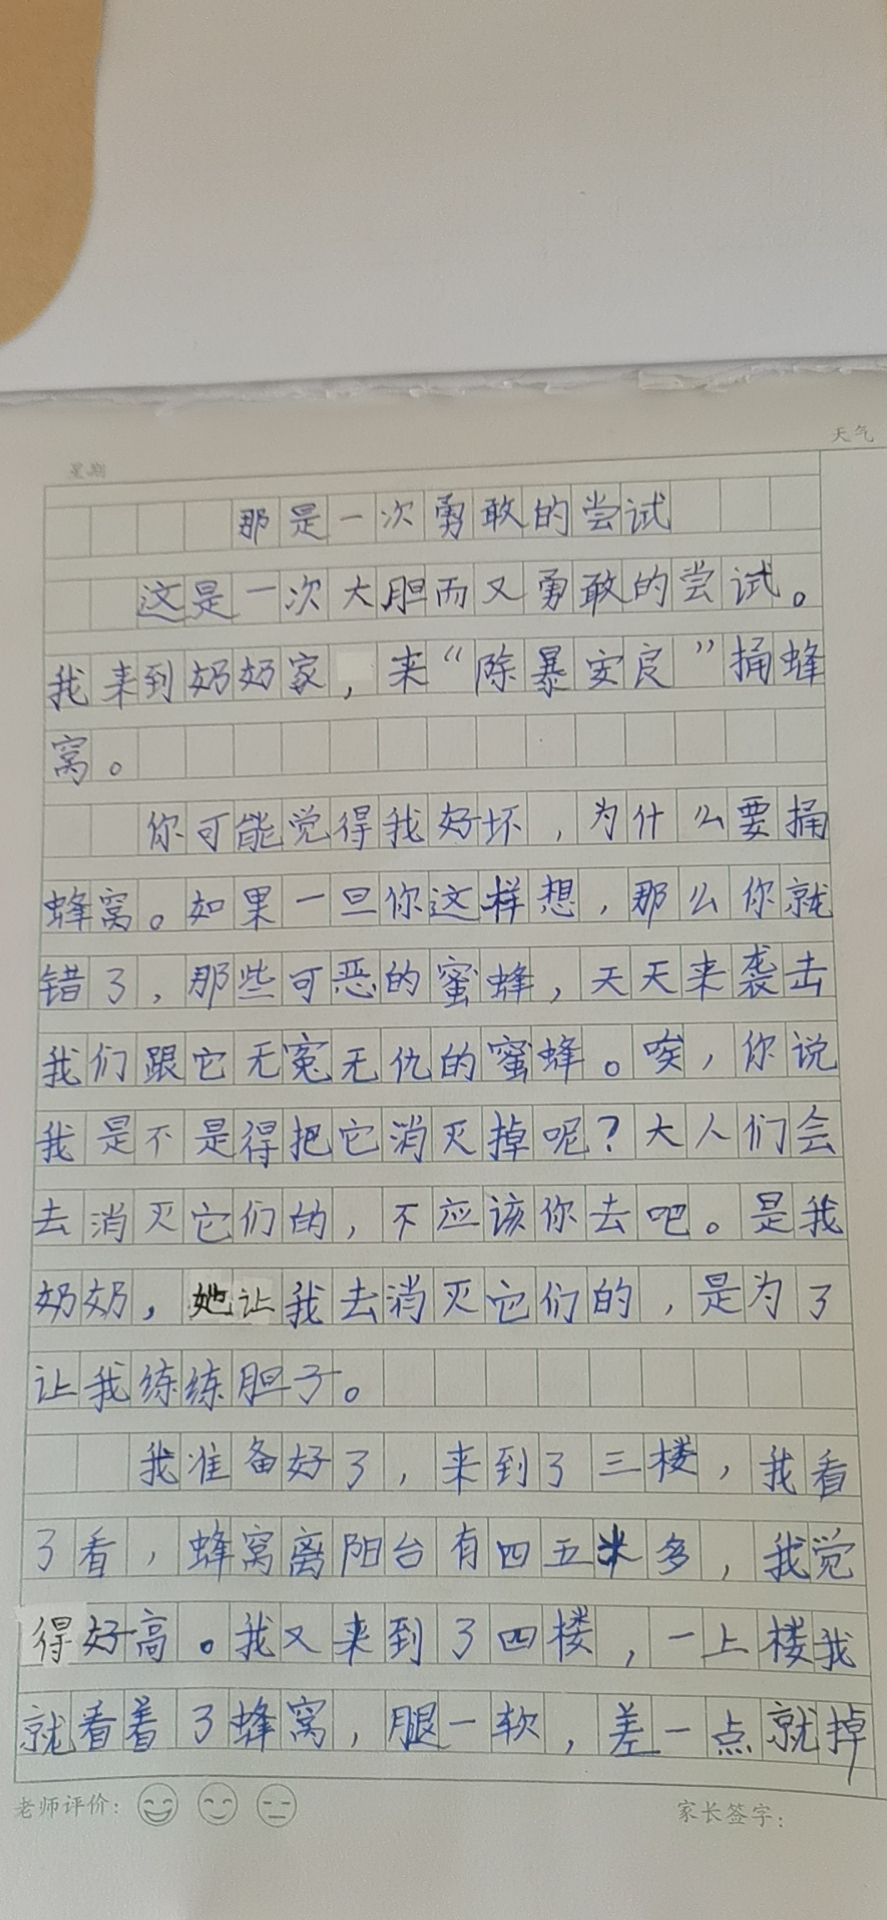 天气
星期
那是一次勇敢的尝试
这是一次大胆而又勇敢的尝试。
我来到奶奶家,来“除暴安良”捅蜂
窝。
你可能觉得我好坏,为什么要捅
蜂窝。如果一旦你这样想,那么你就
错了,那些可恶的蜜蜂,天天来袭击
我们跟它无冤无仇的蜜蜂。唉,你说
我是不是得把它消灭掉呢?大人们会
去消灭它们的,不应该你去吧。是我
奶奶,她让我去消灭它们的,是为了
让我练练胆子。
我准备好了,来到了三楼,我看
了看,蜂窝离阳台有四五米多,我觉
得好高。我又来到了四楼,一上楼我
就看着了蜂窝,腿一软,差一点就掉
老师评价:
家长签字: